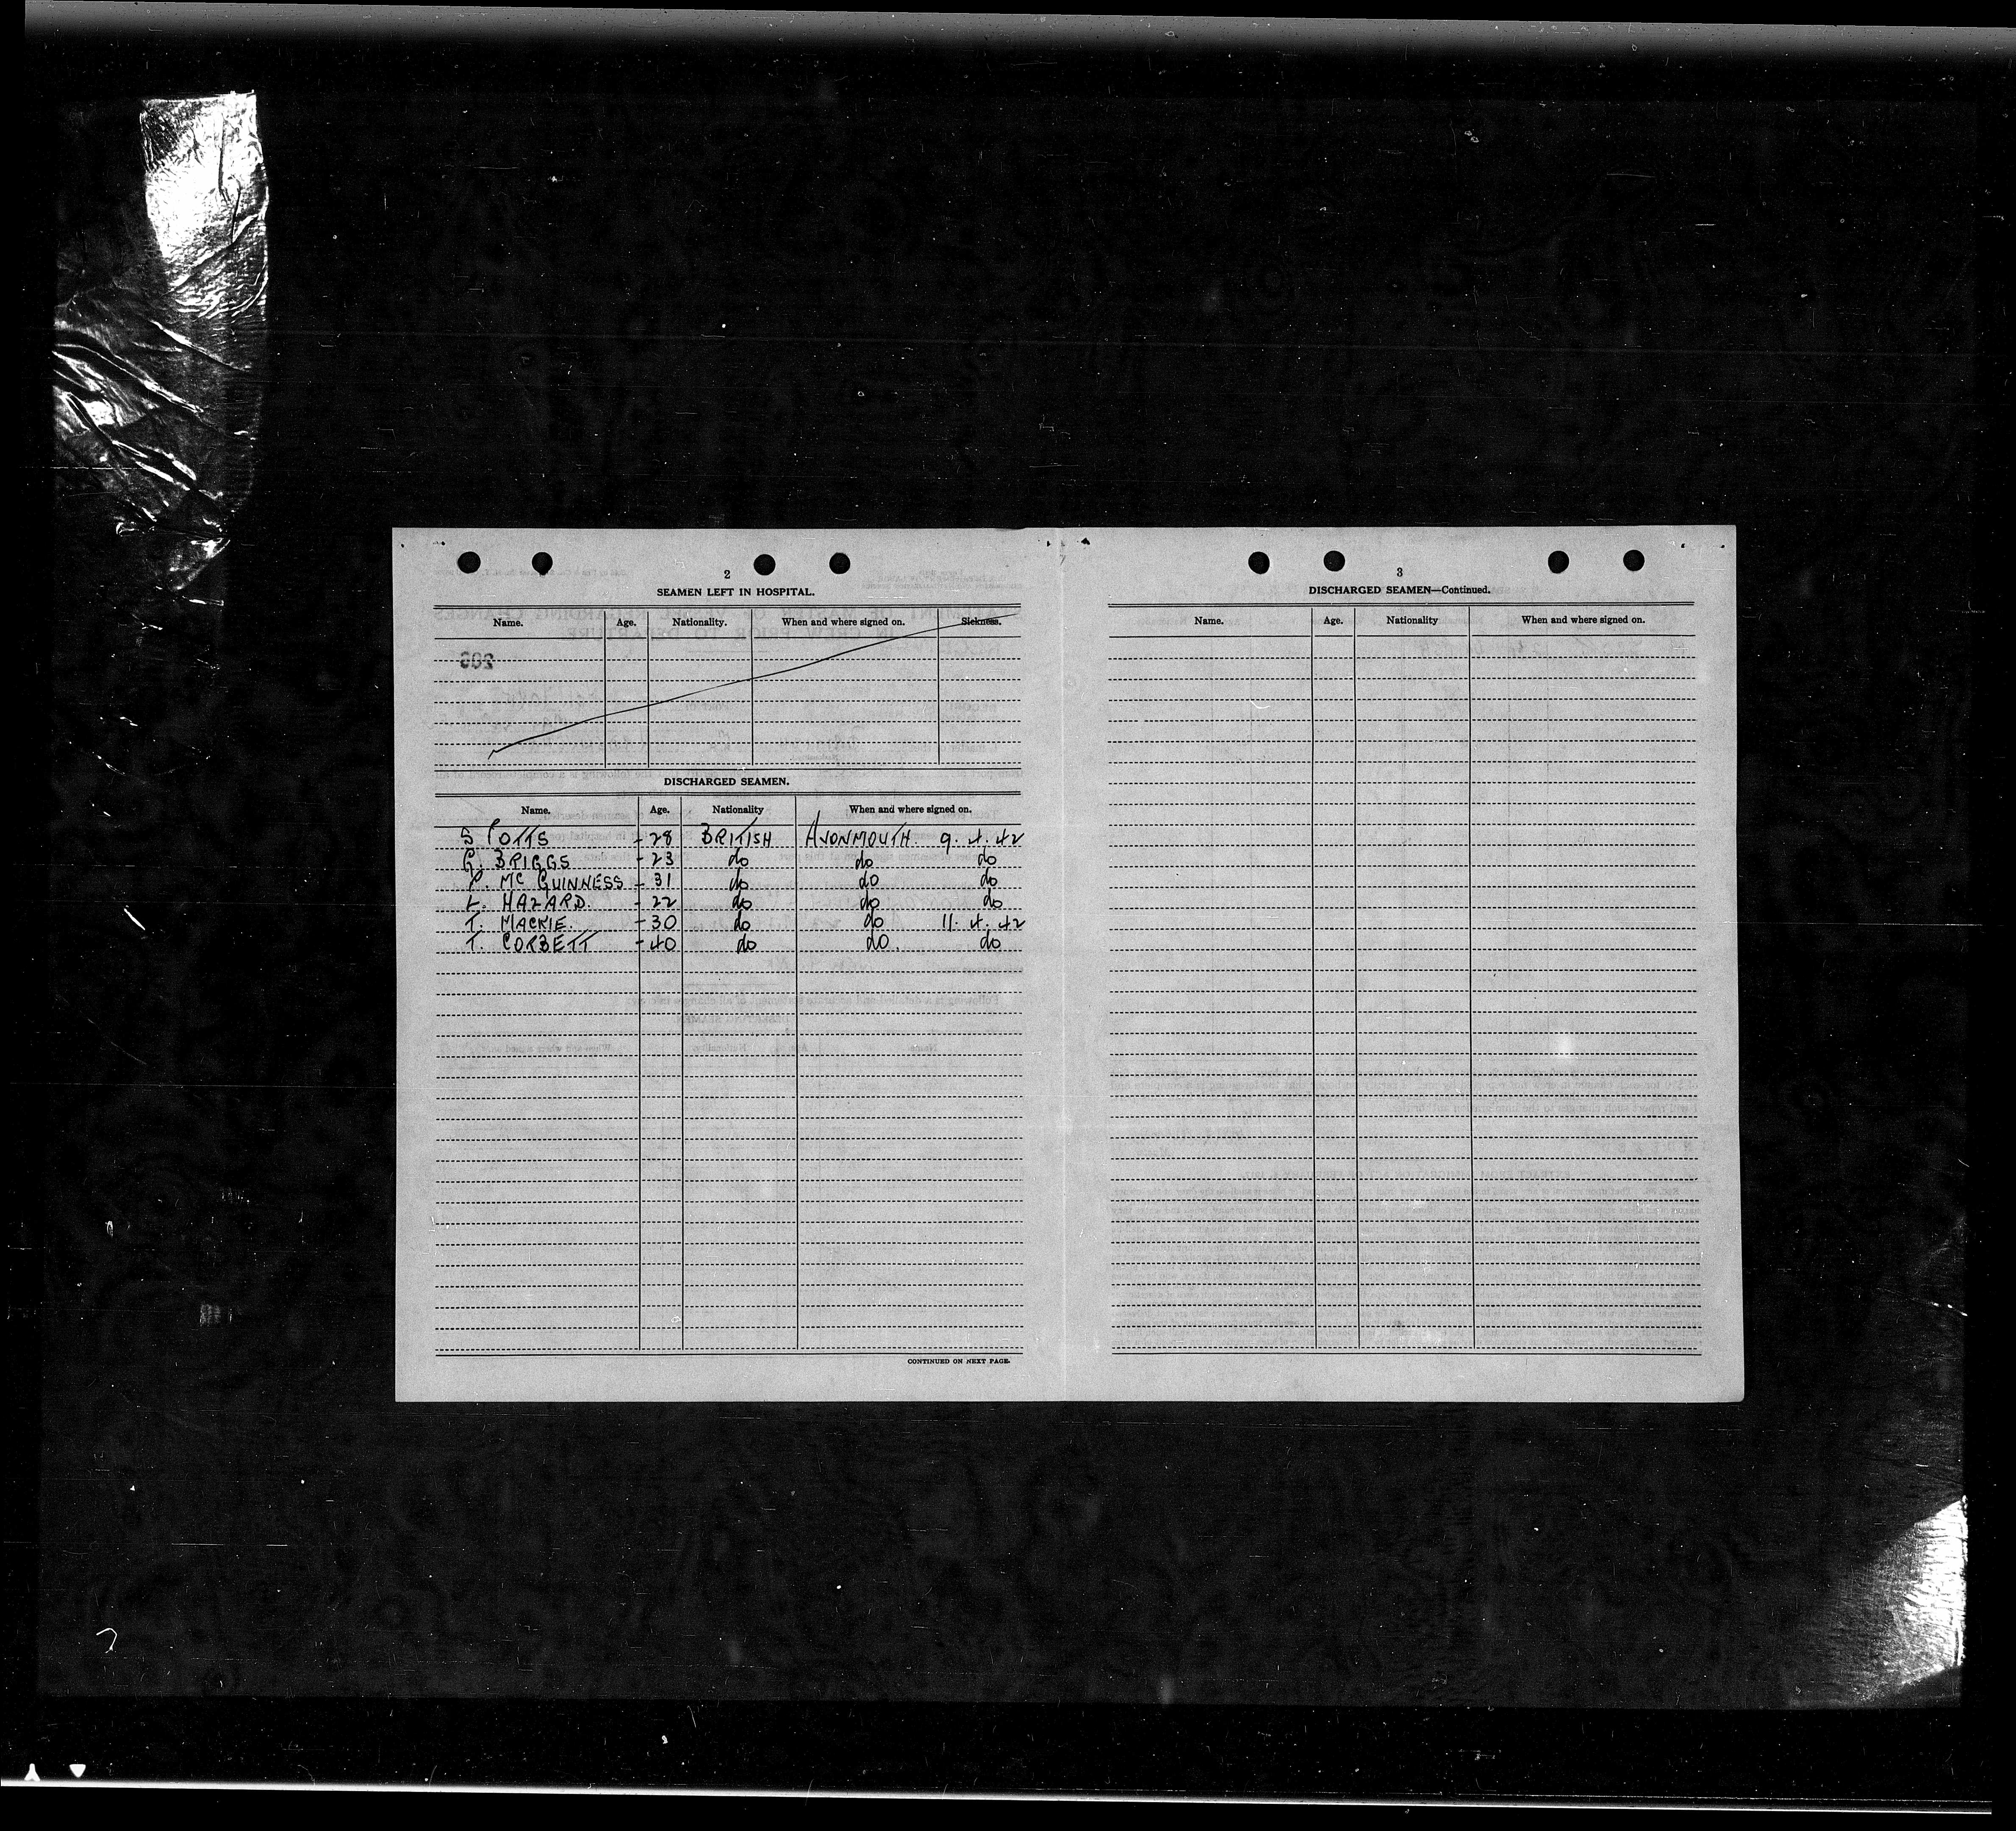 2
SEAMEN LEFT IN HOSPITAL.
Name. Age. Nationality. When and where signed on. Sickness.
DISCHARGED SEAMEN.
Name. Age. Nationality When and where signed on.
S POTTS - 28 BRITISH AVONMOUTH. 9. 4. 42
G. BRIGGS - 23 do do do
P. Mc GUINNESS - 31 do do do
L. HAZARD. - 22 do do do
T. MACKIE. - 30 do do 11. 4. 42
T. CORBETT - 40 do do. do
CONTINUED ON NEXT PAGE.
3
DISCHARGED SEAMEN—Continued.
Name. Age. Nationality When and where signed on.